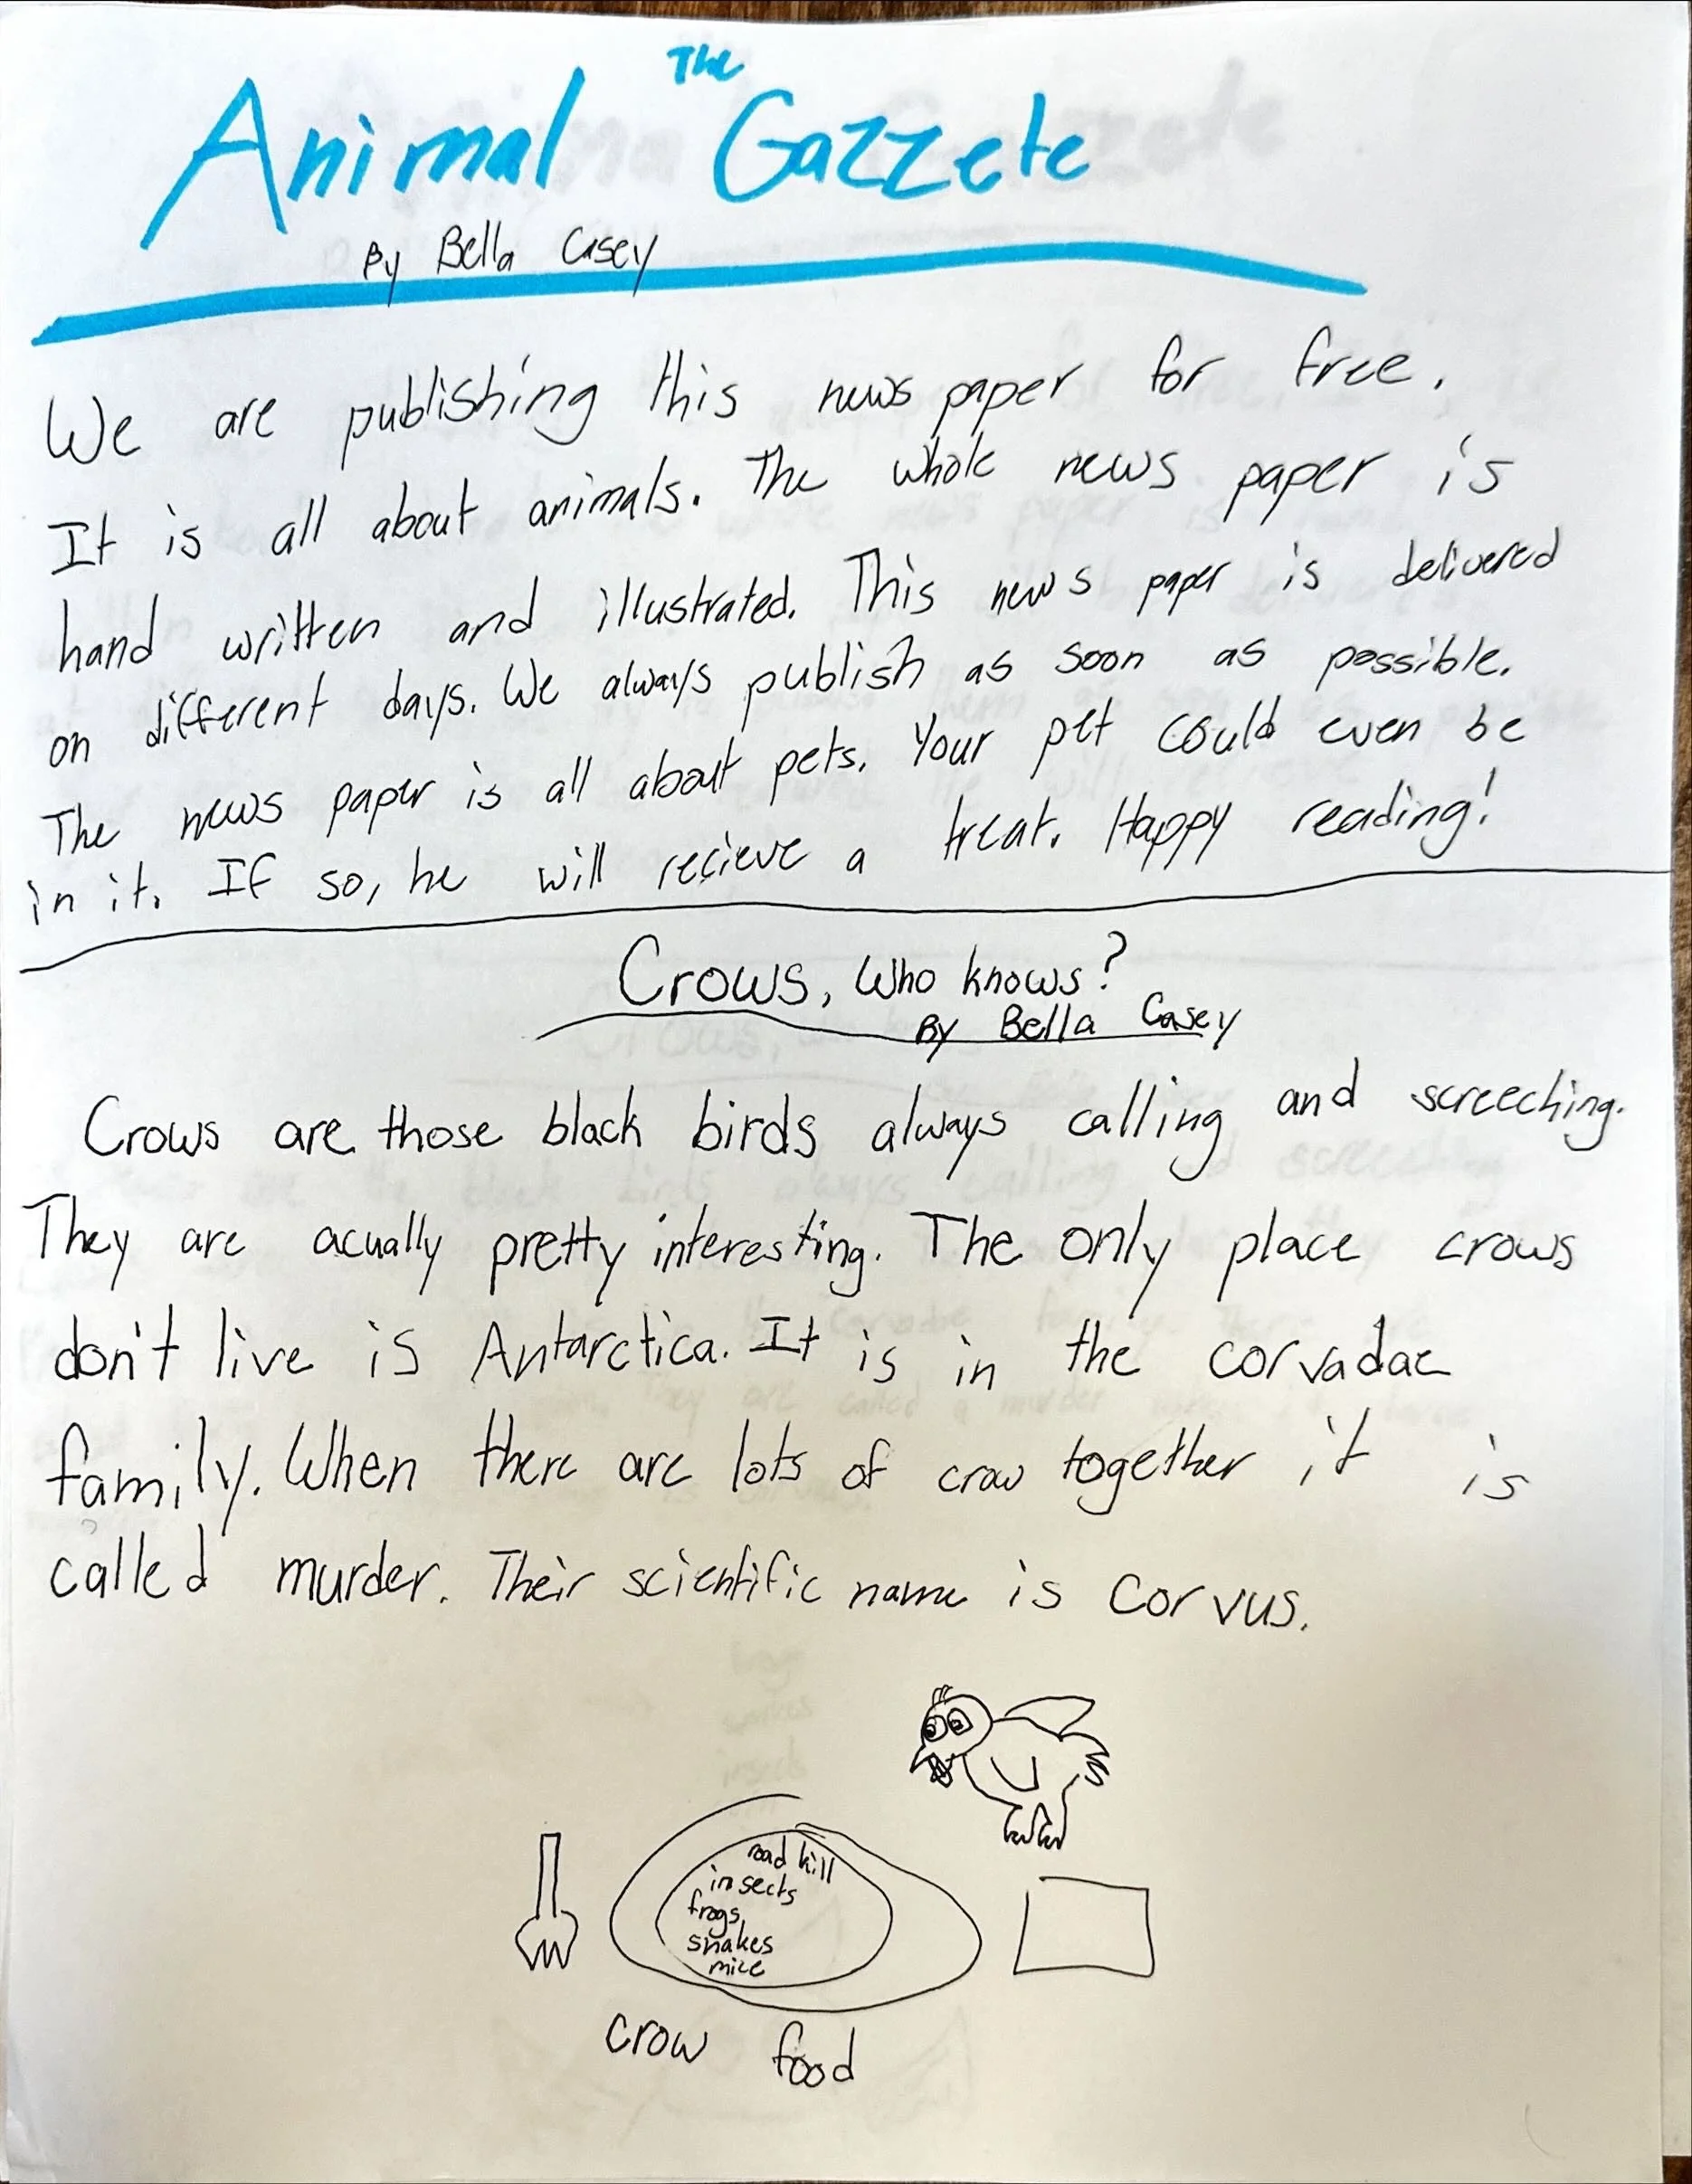 The
Animal Gazzete
By Bella Casey
We are publishing this news paper for free.
It is all about animals. The whole news paper is
hand written and illustrated. This news paper is delivered
on different days. We always publish as soon as possible.
The news paper is all about pets. Your pet could even be
in it. If so, he will recieve a treat. Happy reading!
Crows, Who knows?
By Bella Casey
Crows are those black birds always calling and screeching.
They are acually pretty interesting. The only place crows
don't live is Antarctica. It is in the corvadae
family. When there are lots of crow together it is
called murder. Their scientific name is Corvus.
road kill
insects
frogs,
snakes
mice
crow food